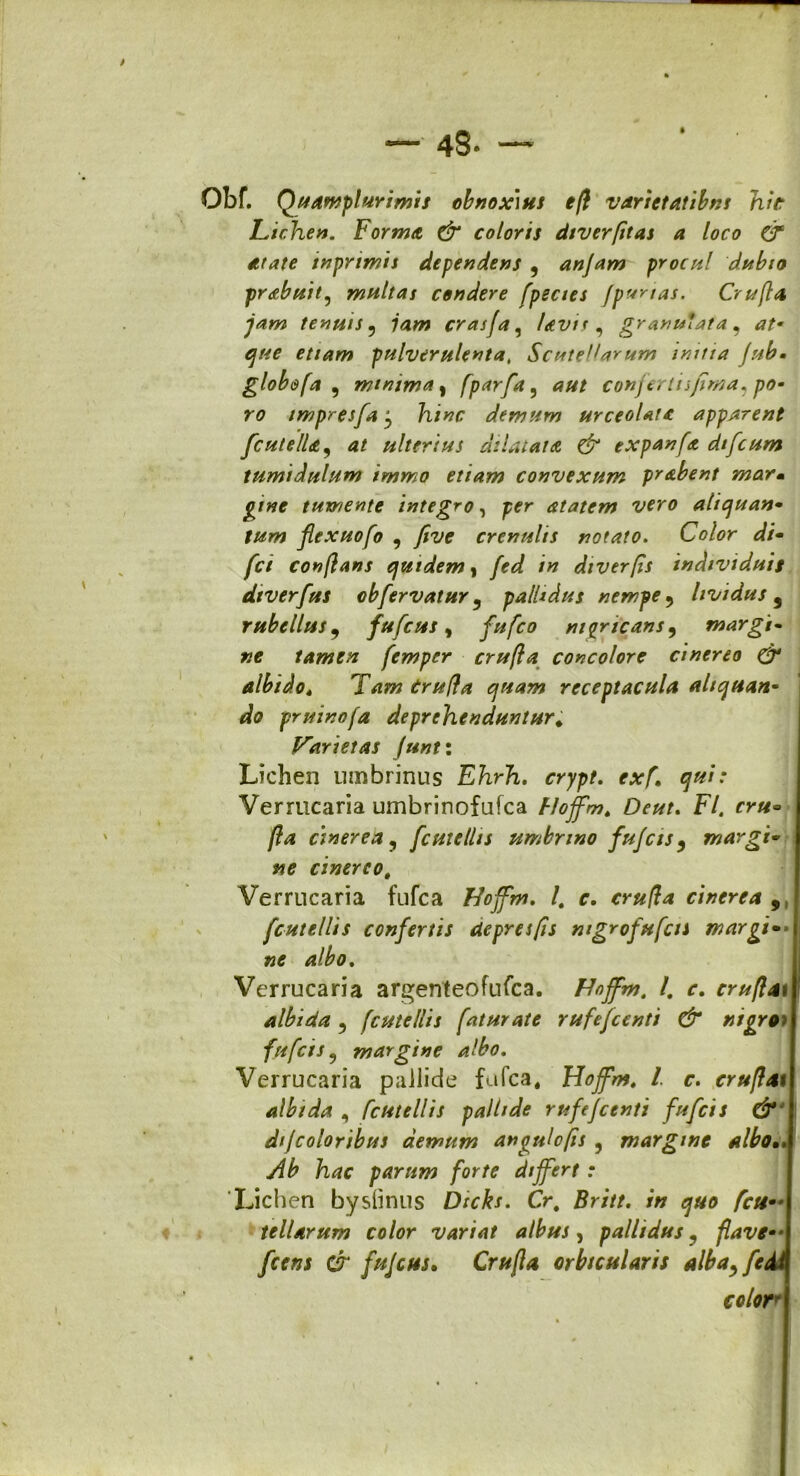 — 48. —
Obſ. Quamplurimis obnoxius eſt varietatibns hic
Lichen. Formæ & coloris diverſitas a loco &
ætate inprimis dependens , anſam procul dubio
præbuit, multas condere ſpecies ſpurias. Cruſta
jam tenuis, jam crasſa, lævis, granulata, at-
que etiam pulverulenta. Scutellarum initia ſub-
globoſa , minima, ſparſa, aut confertisſima, po-
ro impresſa; hinc demum urceolatæ apparent
ſcutellæ, at ulterius dilatatæ & expanſæ diſcum
tumidulum immo etiam convexum præbent mar-
gine tumente integro, per ætatem vero aliquan-
tum flexuoſo , ſive crenulis notato. Color di-
ſci conſtans quidem, ſed in diverſis individuis
diverſus obſervatur, pallidus nempe, lividus,
rubellus, fuſcus, fuſco nigricans, margi-
ne tamen ſemper cruſta concolore cinereo &
albido. Tam cruſta quam receptacula aliquan-
do pruinoſa deprehenduntur.
Varietas ſunt:
Lichen umbrinus Ehrh. crypt. exſ. qui:
Verrucaria umbrinofuſca Hoffm. Deut. Fl. cru-
ſta cinerea, ſcutellis umbrino fuſcis, margi-
ne cinereo.
Verrucaria fuſca Hoffm. l. c. cruſta cinerea ,
ſcutellis confertis depresſis nigrofuſcis margi-
ne albo.
Verrucaria argenteofuſca. Hoffm. l. c. cruſta
albida , ſcutellis ſaturate rufeſcenti & nigro
fuſcis, margine albo.
Verrucaria pallide fuſca. Hoffm. l. c. cruſta
albida , ſcutellis pallide rufeſcenti fuſcis &
diſcoloribus demum anguloſis , margine albo.
Ab hac parum forte differt:
Lichen bysſinus Dicks. Cr. Britt. in quo ſcu-
tellarum color variat albus, pallidus, flave-
ſcens & fuſcus. Cruſta orbicularis alba, ſed
color